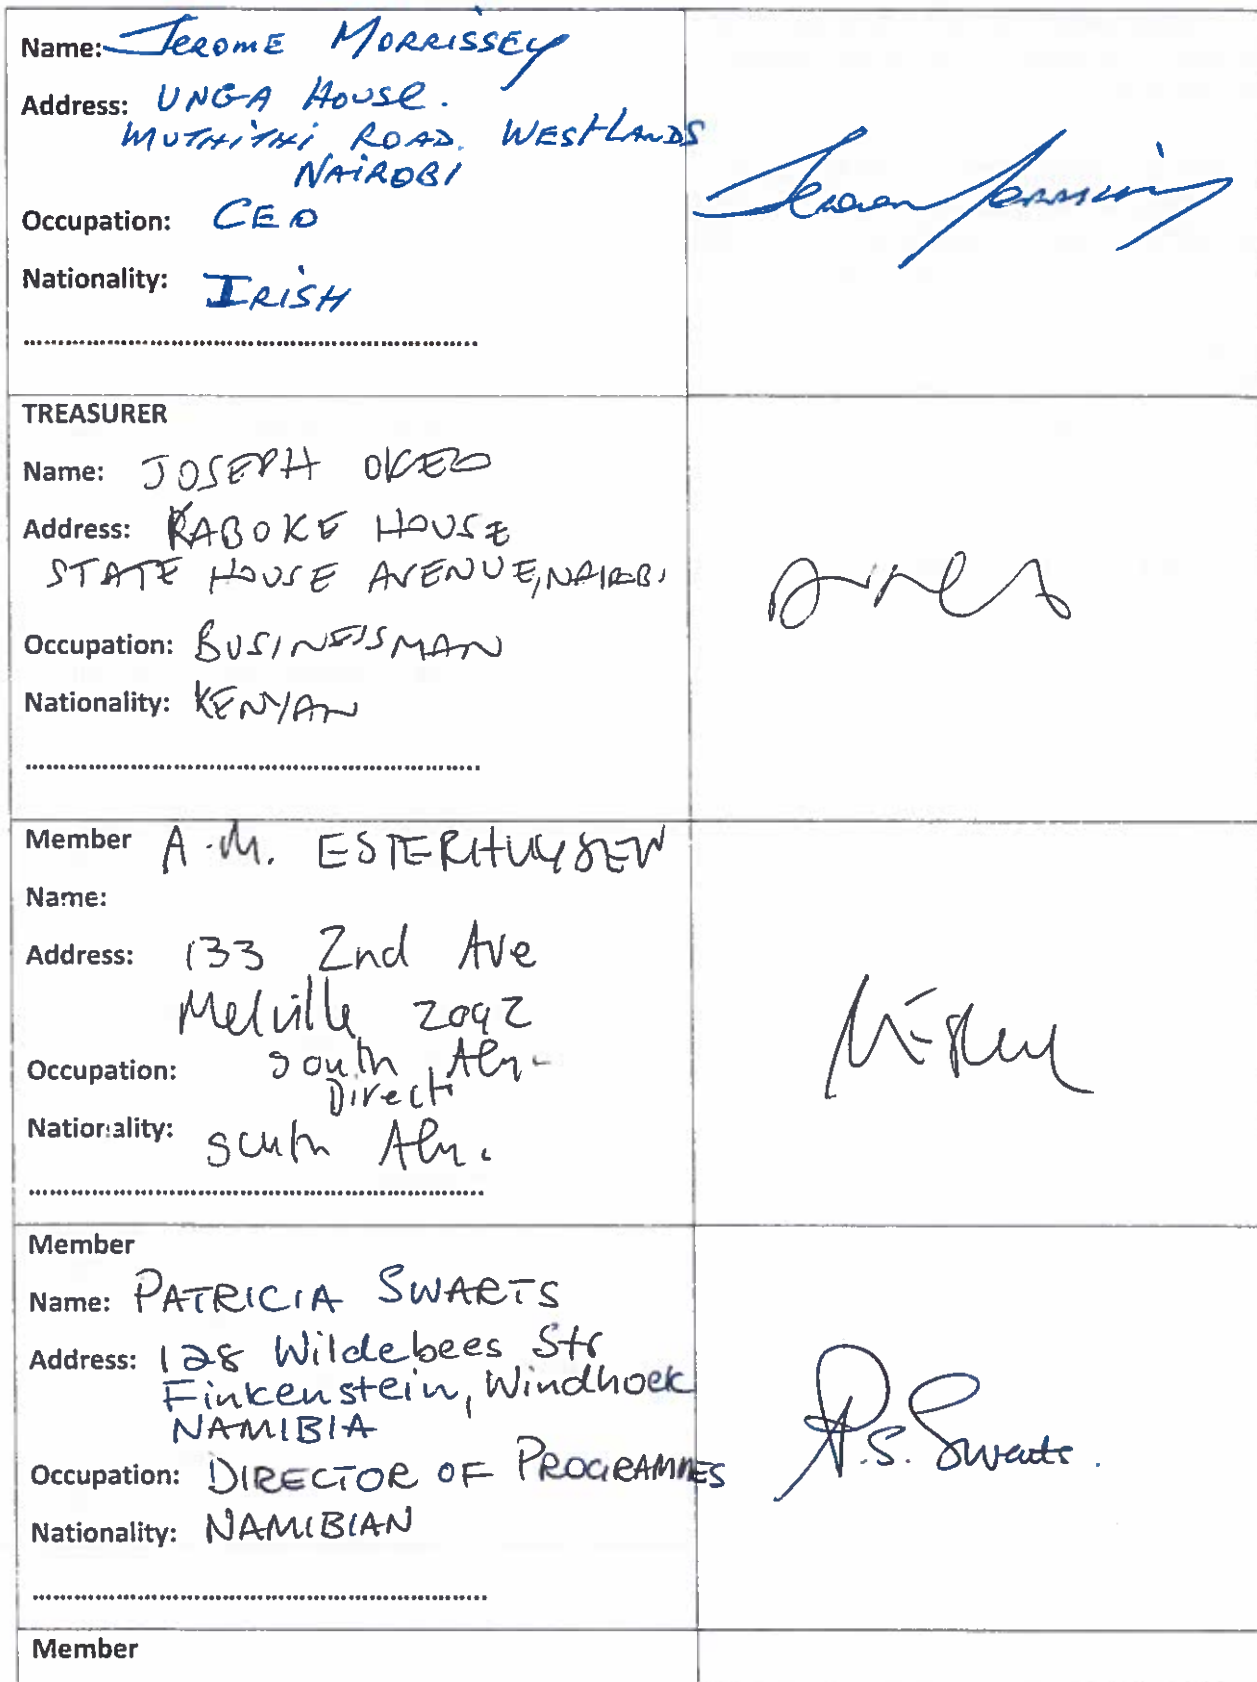 Name: JEROME MORRISSEY
Address: UNGA HOUSE.
MUTHITHI ROAD. WESTLANDS
NAIROBI
Occupation: CEO
Nationality: IRISH
TREASURER
Name: JOSEPH OKELO
Address: KABOKE HOUSE
STATE HOUSE AVENUE, NAIROBI
Occupation: BUSINESSMAN
Nationality: KENYAN
Member A.M. ESTERHUYSEN
Name:
Address: 133 2nd Ave
Melville 2092
South
Occupation:
Nationality: South
Member
Name: PATRICIA SWARTS
Address: 128 Wildebees Str
Finkenstein, Windhoek
NAMIBIA
Occupation: DIRECTOR OF PROGRAMMES
Nationality: NAMIBIAN
P.S. Swarts.
Member